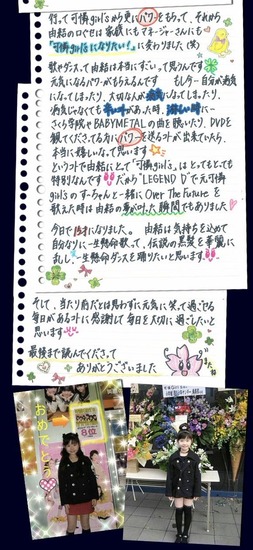 行って可憐girl'sから更にパワーをもらって、それから
由結の口ぐせは家族にもマネージャーさんにも
「可憐girl'sになりたい!」に変わりました(笑)
歌やダンスって由結は本当にすごいって思うんです
元気になるパワーがもらえるんです もし今一自分が病気
になってしまったり、大切な人が病気になってしまったり、
病気じゃなくても
さくら学院やBABYMETALの曲を聴いたり、DVDを
観てくださってる方にパワーを送るコトが出来ていたら、
本当に嬉しいなって思います
というコトで由結にとって「可憐girl's」はとってもとっても
特別なんです だから“LEGEND D”で元可憐
girl'sのすーちゃんと一緒にOver The Futureを
歌えた時は由結の夢が叶った瞬間でもありました
今日で13才になりました。 由結は気持ちを込めて
自分なりに一生懸命歌って、伝説の黒髪を華麗に
乱し、一生懸命ダンスを踊りたいと思います
そして、当たり前だとは思わずに元気に笑って過ごせる
毎日があるコトに感謝して毎日を大切に過ごしたいと
思います
最後まで読んでくださって
ありがとうございました
おめでとう
8位